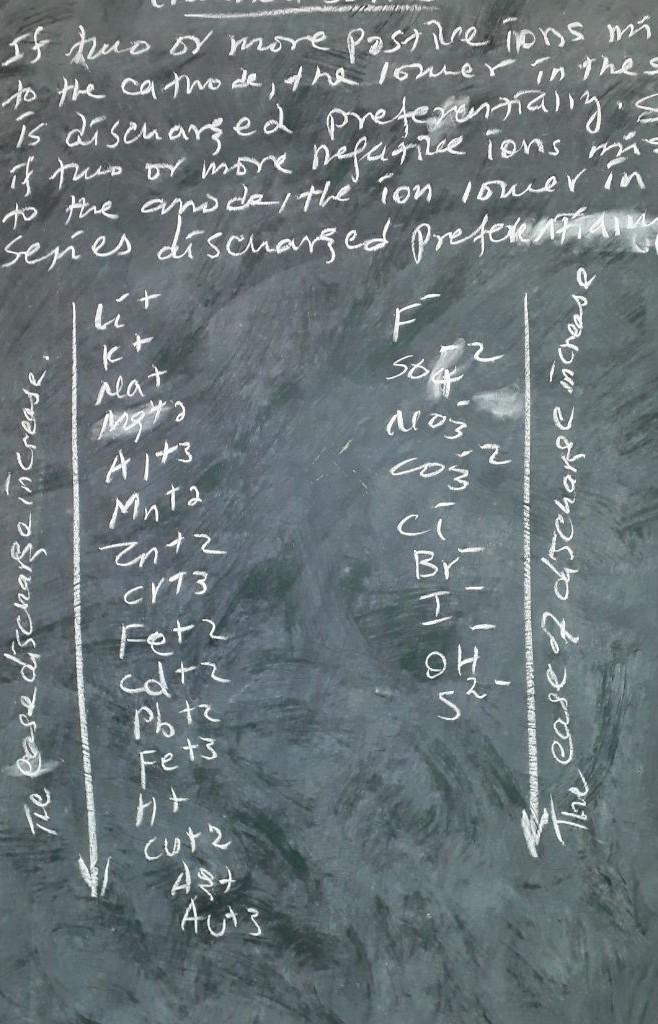 If two or more postive ions mi
to the cathode, the lower in the s
is discharged preferentially. S
if two or more negative ions mis
to the anode, the ion lower in
series discharged preferentially
The ease discharge increase.
Li+
K+
Na+
Mg+2
Al+3
Mn+2
Zn+2
Cr+3
Fe+2
Cd+2
Pb+2
Fe+3
H+
Cu+2
Ag+
Au+3
F-
SO4-2
NO3-
CO3-2
Cl-
Br-
I-
OH-
S2-
The ease of discharge increase